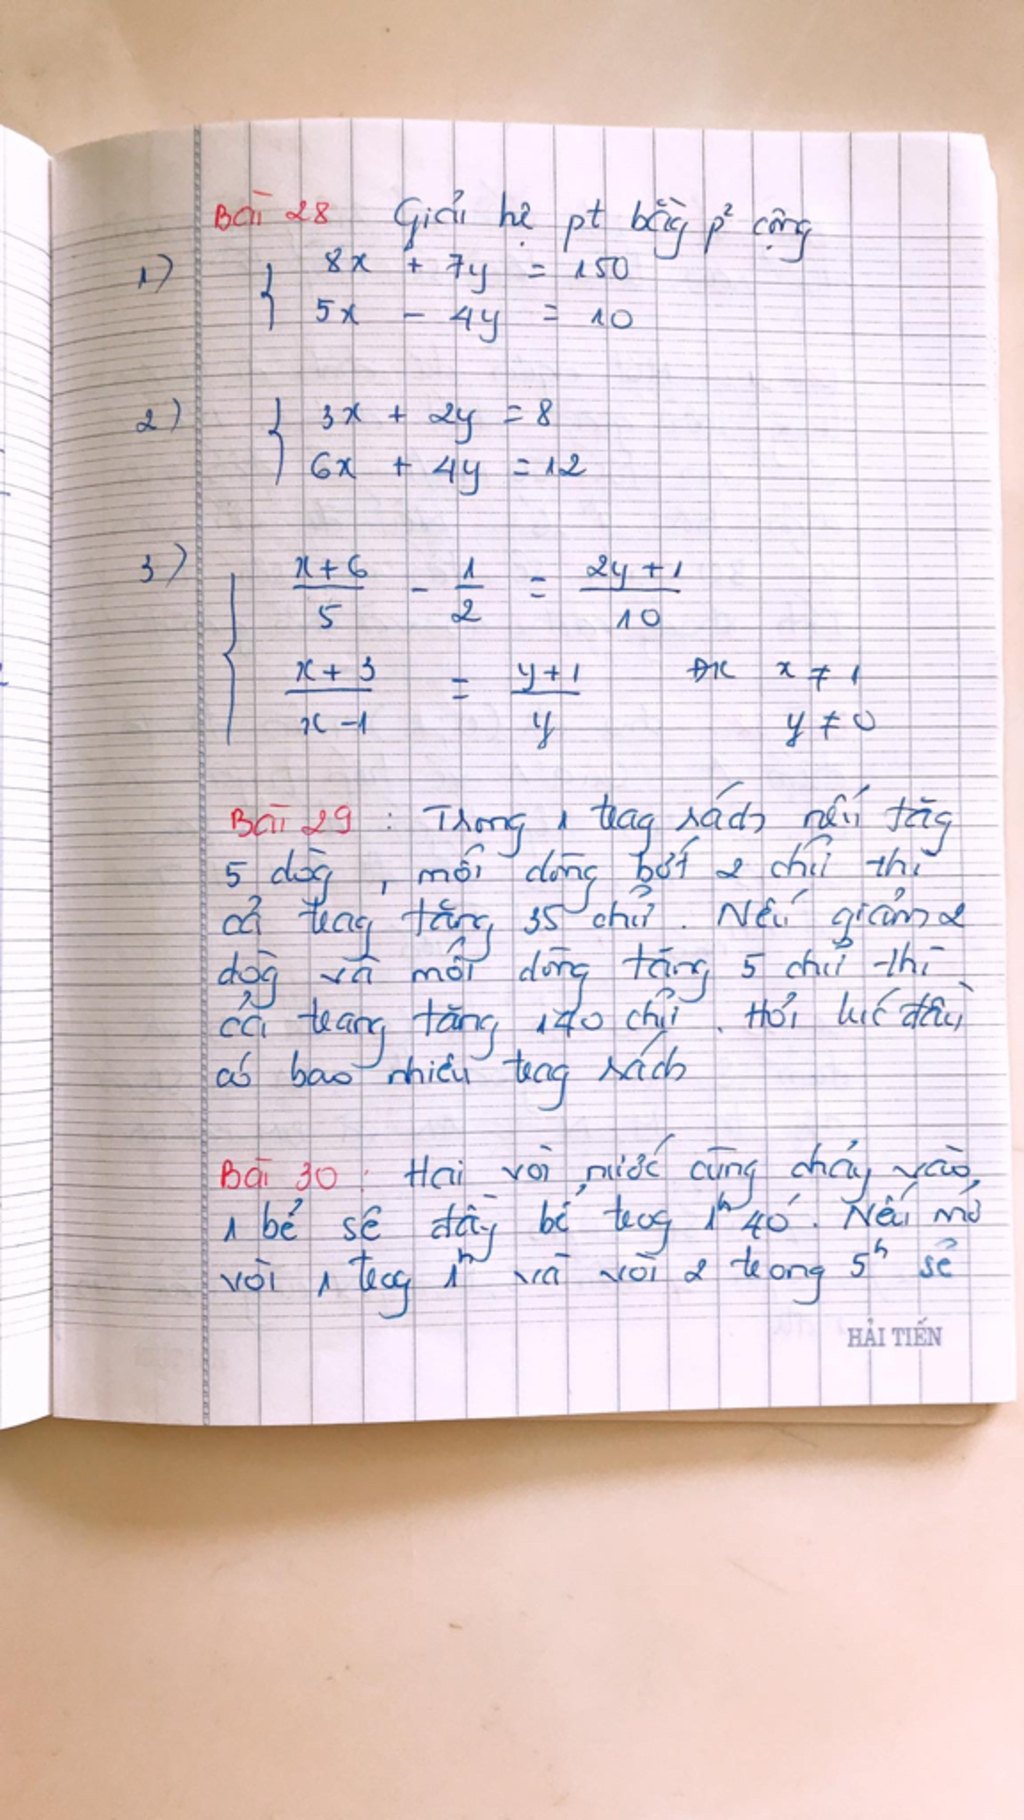 Bài 28 Giải hệ pt bằg p² cộng
1) { 8x + 7y = 150
5x - 4y = 10
2) { 3x + 2y = 8
6x + 4y = 12
3) { x+6/5 - 1/2 = 2y+1/10
x+3/x-1 = y+1/y ĐK x ≠ 1
y ≠ 0
Bài 29 : Trong 1 trag sách nếu tăg
5 dòg , mỗi dòng bớt 2 chữ thì
cả trag tăng 35 chữ. Nếu giảm 2
dòg và mỗi dòng tăng 5 chữ thì
cả trang tăng 140 chữ. Hỏi lúc đầu
có bao nhiêu trag sách
Bài 30 : Hai vòi nước cùng chảy vào
1 bể sẽ đầy bể trog 1h 40'. Nếu mở
vòi 1 trog 1h và vòi 2 trong 5h sẽ
HẢI TIẾN